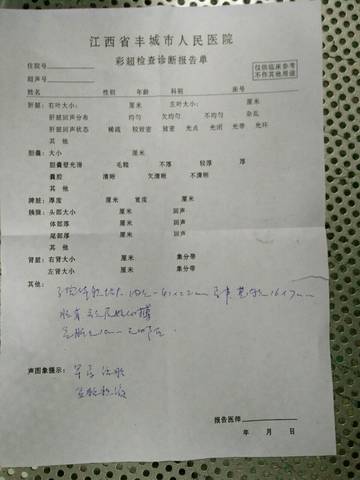 江西省丰城市人民医院
彩超检查诊断报告单
仅供临床参考
不作其他用途
住院号
超声号
姓名 性别 年龄 科别 床号
肝脏：右叶大小： 厘米 左叶大小： 厘米
肝脏回声分布 均匀 欠均匀 不均匀 杂乱
肝脏回声状态 稀疏 较致密 致密 光点 光团 光带 光环
其 他
胆囊：大小 厘米
胆囊壁光滑 毛糙 不厚 较厚 厚
囊腔 清晰 欠清晰 不清晰
其 他
脾脏：厚度 厘米 宽度 厘米
胰腺：头部大小 厘米 回声
体部厚 厘米 回声
尾部厚 厘米 回声
其 他
肾脏：右肾大小 厘米 集分带
左肾大小 厘米 集分带
其他：
声图象提示： 早孕
盆腔积液
报告医师
年 月 日